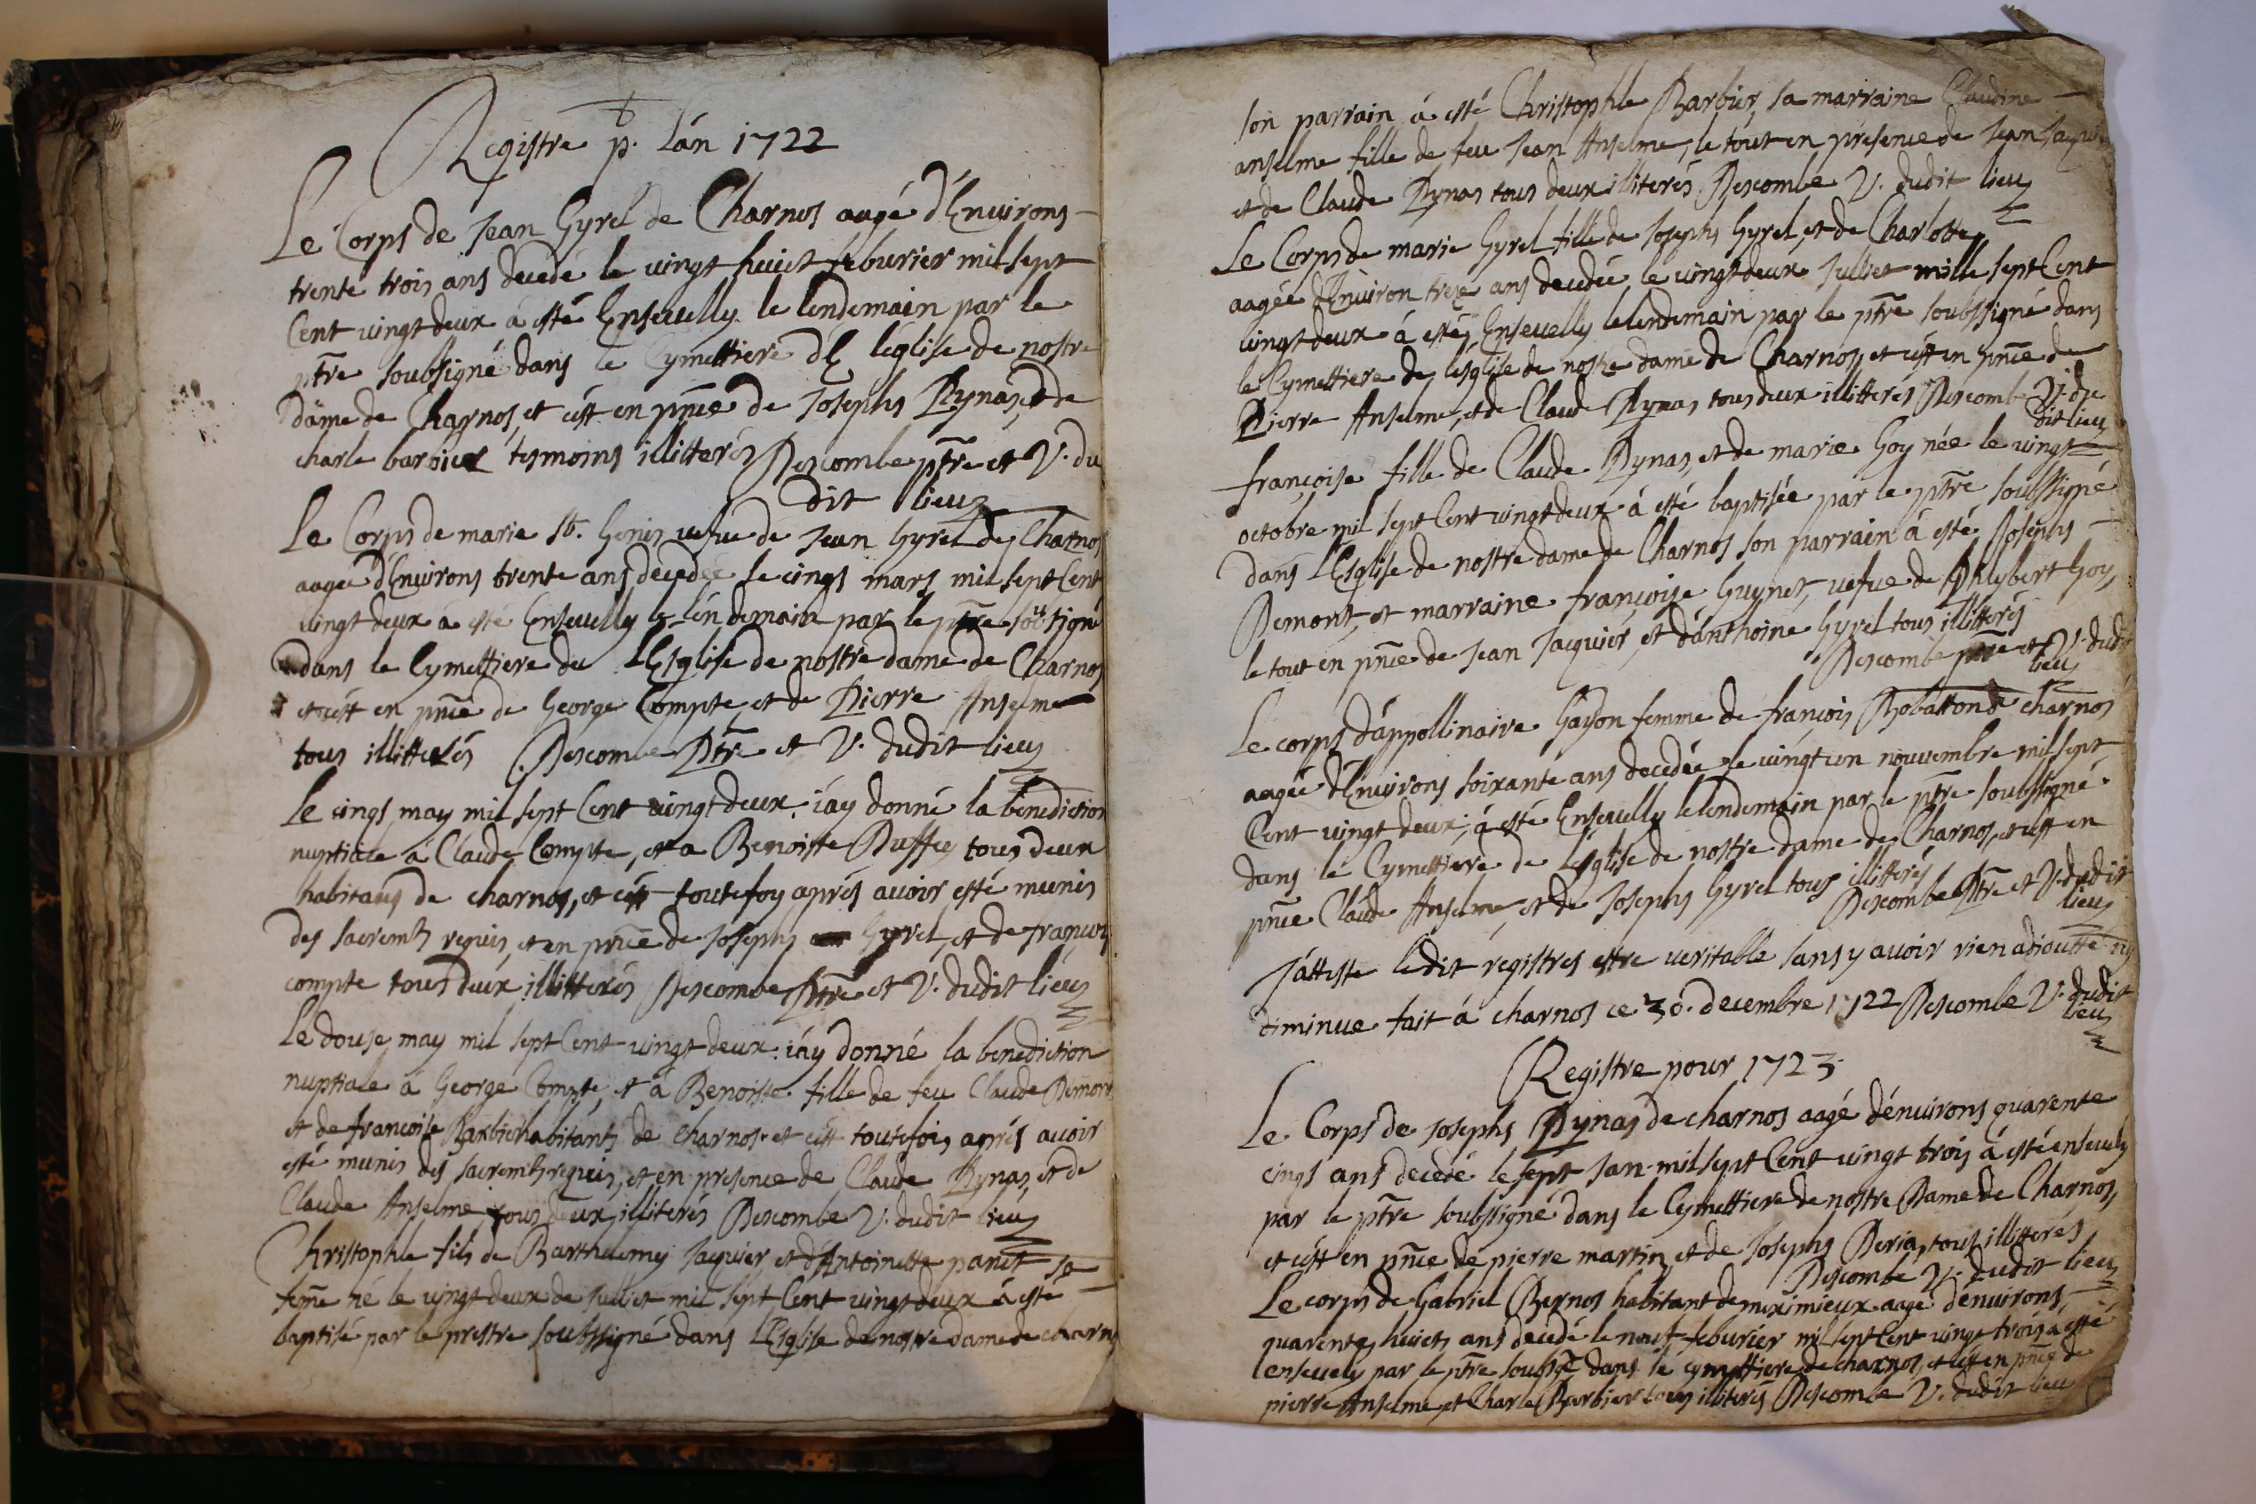 Registre p. lán 1722
Le Corps de Jean Gyrel de Charnos aagé d'Environs
trente trois ans decedé le vingt huict feburier mil sept
Cent vingt deux à esté Ensevelly le lendemain par le
ptre soubsigné dans le Cymettiere de l'église de nostre
dame de Charnos, et cést en pnce de Josephs Rynas, et de
charle barbier tesmoins illitterés Descombe ptre et V. du
dit lieu
Le Corps de marie St. Genis vefve de Jean Gyrel de Charnos
aagee d'Environs trente ans decedée le cinqs mars mil sept Cent
vingt deux à esté Ensevelly le lendemain par le ptre sousigné
dans le Cymettiere du l'Esglise de nostre dame de Charnos
et cést en pnce de George Compte, et de Pierre Anselme
tous illitterés Descombe Ptre et V. dudit lieu
Le cinqs may mil sept Cent vingt deux j'ay donné la benediction
nuptiale à Claude Compte, et a Benoiste Buffey tous deux
habitans de charnos, et cést toutefoy aprés avoir esté munis
des sacremts requis, et en pnce de Josephs Gyrel, et de francois
compte tous deux illitterés Descombe Ptre et V. dudit lieu
Le douse may mil sept Cent vingt deux j'ay donné la benediction
nuptiale à George Compte et à Benoiste fille de feu Claude Demont
et de francoise Barbier habitants de Charnos et cést toutefois aprés avoir
esté munis des sacremts requis, et en presence de Claude Rynas, et de
Claude Anselme tous deux illiterés Descombe V. dudit lieu
Christophle fils de Barthelemy Jaquier et d'Antoinette panet sa
feme né le vingt deux de Juillet mil sept Cent vingt deux à esté
baptisé par le prestre soubsigné dans l'Esglise de nostre dame de charnos
son parrain à esté Christophle Barbier, sa marraine Claudine
anselme fille de feu Jean Anselme, le tout en presence de Jean Jaquier
et de Claude Rynas tous deux illiterés Descombe V. dudit lieu
Le Corps de marie Gyrel fille de Josephs Gyrel, et de Charlotte
aagée d'Environ treze ans decedée le vingt deux Juillet mille sept Cent
vingt deux à esté Ensevelly le lendemain par le ptre soubssigné dans
le Cymettiere de lesglise de nostre dame de Charnos, et cést en pnce de
Pierre Anselme, et de Claude Rynas tous deux illitterés Descombe V. du
dit lieu
françoise fille de Claude Rynas, et de marie Goy née le vingt
octobre mil sept Cent vingt deux à esté baptisée par le ptre soubssigné
dans l'Esglise de nostre dame de Charnos son parrain à esté Josephs
Demont, et marraine françoise Guynet, vefve de Phlybert Goy,
le tout en pnce de Jean Jacquier, et d'anthoine Gyrel tous illitterés
Descombe ptre et V. dudit
lieu
Le corps d'appollinaire Gayon femme de françois Robatton de charnos
aagée d'Environs soixante ans decedée le vingt un nouvembre mil sept
Cent vingt deux, à esté Ensevelly le lendemain par le ptre soubssigné
dans le Cymettiere de l'ésglise de nostre dame de Charnos, et cést en
pnce Claude Anselme, et de Josephs Gyrel tous illitterés
Descombe Ptre et V. dudit
lieu
J'atteste ledit registres estre veritable sans y avoir rien adioutté ny
diminue fait à charnos ce 30. decembre 1722 Descombe V. dudit
lieu
Registre pour 1723
Le Corps de Josephs Rynas de charnos aagé d'énvirons quarente
cinqs ans decedé le sept Jan. mil sept Cent vingt trois à esté ensevely
par le ptre soubssigné dans le Cymettiere de nostre Dame de Charnos,
et cést en pnce de pierre martin, et de Josephs Beria, tous illitterés
Descombe V. dudit lieu
Le corps de Gabriel Bernos habitant de meximieux aagé d'environs
quarente huicts ans decedé le neuf feburier mil sept Cent vingt trois à esté
ensevely par le ptre soubsgé dans le cymettiere de charnos, et cést en pnce de
pierre Anselme, et Charle Barbier tous illiterés Descombe V. dudit lieu